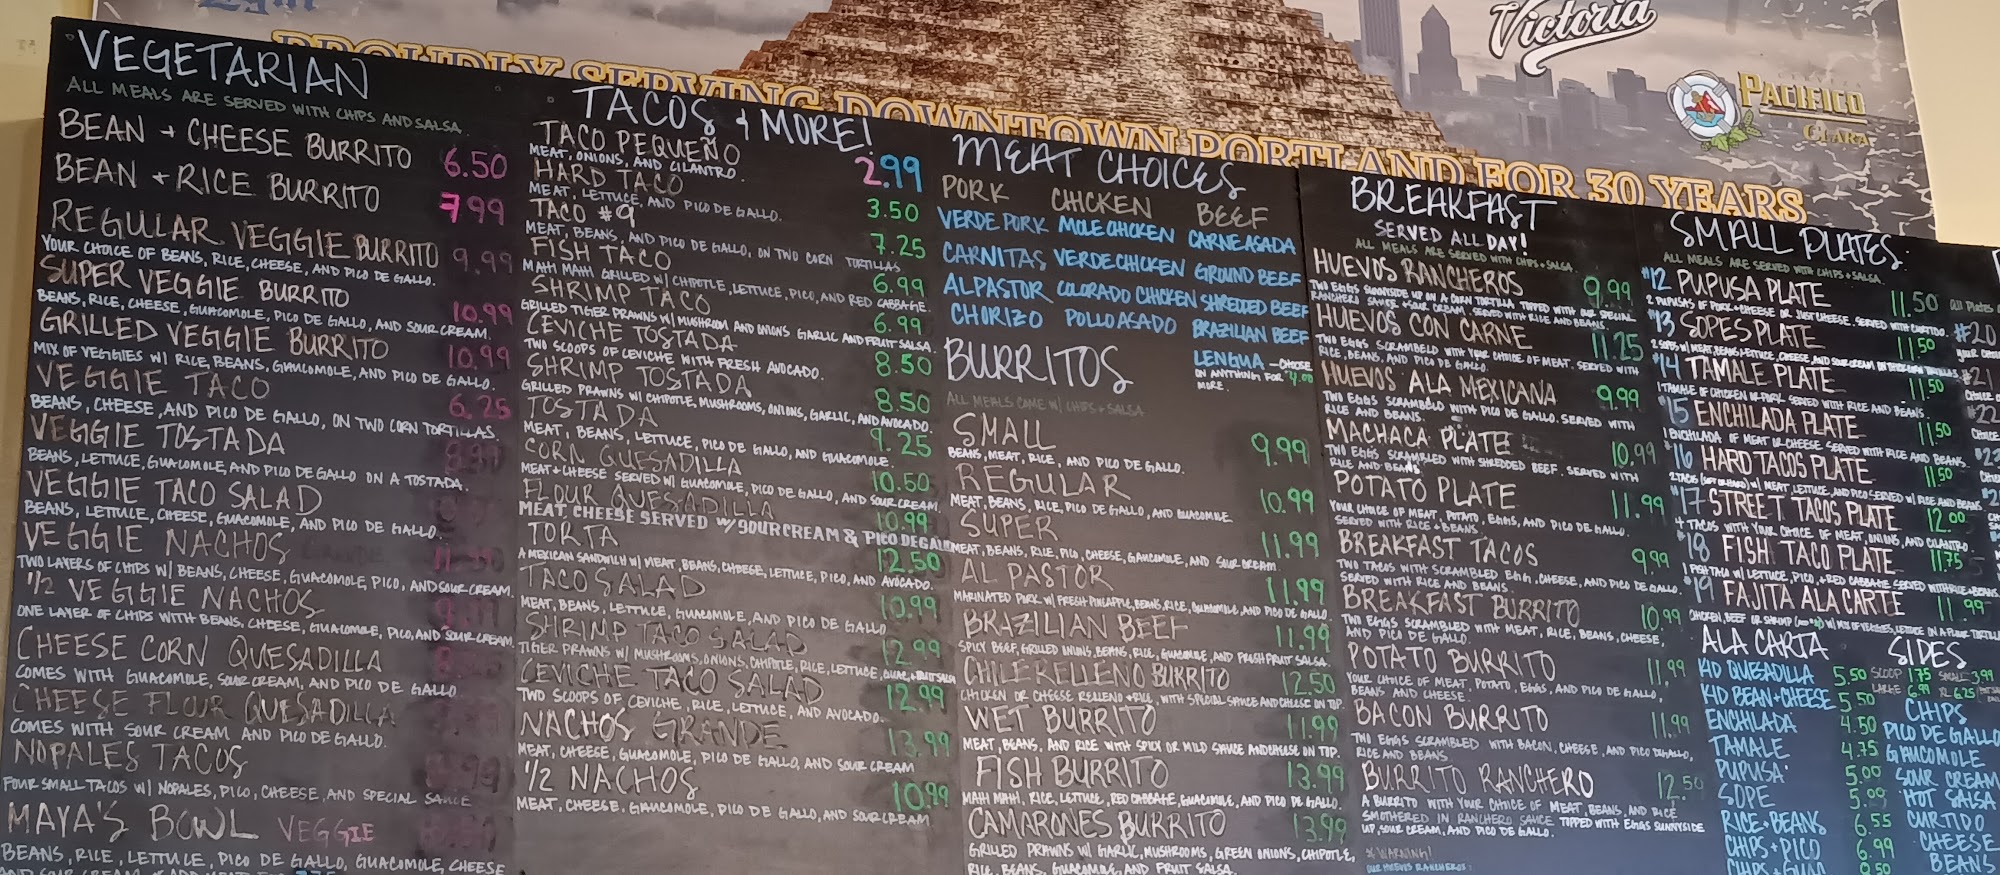 Victoria
PACIFICO
CLARA
PROUDLY SERVING DOWNTOWN PORTLAND FOR 30 YEARS
VEGETARIAN
ALL MEALS ARE SERVED WITH CHIPS AND SALSA
BEAN + CHEESE BURRITO 6.50
BEAN + RICE BURRITO 7.99
REGULAR VEGGIE BURRITO 9.99
YOUR CHOICE OF BEANS, RICE, CHEESE, AND PICO DE GALLO.
SUPER VEGGIE BURRITO 10.99
BEANS, RICE, CHEESE, GUACOMOLE, PICO DE GALLO, AND SOUR CREAM.
GRILLED VEGGIE BURRITO 10.99
MIX OF VEGGIES W/ RICE, BEANS, GUACOMOLE, AND PICO DE GALLO.
VEGGIE TACO 6.25
BEANS, CHEESE, AND PICO DE GALLO, ON TWO CORN TORTILLAS.
VEGGIE TOSTADA
BEANS, LETTUCE, GUACOMOLE, AND PICO DE GALLO ON A TOSTADA.
VEGGIE TACO SALAD
BEANS, LETTUCE, CHEESE, GUACOMOLE, AND PICO DE GALLO.
VEGGIE NACHOS GRANDE
TWO LAYERS OF CHIPS W/ BEANS, CHEESE, GUACOMOLE, PICO, AND SOUR CREAM.
1/2 VEGGIE NACHOS
ONE LAYER OF CHIPS WITH BEANS, CHEESE, GUACOMOLE, PICO, AND SOUR CREAM.
CHEESE CORN QUESADILLA
COMES WITH GUACOMOLE, SOUR CREAM, AND PICO DE GALLO
CHEESE FLOUR QUESADILLA
COMES WITH SOUR CREAM AND PICO DE GALLO.
NOPALES TACOS
FOUR SMALL TACOS W/ NOPALES, PICO, CHEESE, AND SPECIAL SAUCE
MAYA'S BOWL VEGGIE
BEANS, RICE, LETTUCE, PICO DE GALLO, GUACOMOLE, CHEESE
TACOS & MORE!
TACO PEQUEÑO 2.99
MEAT, ONIONS, AND CILANTRO.
HARD TACO 3.50
MEAT, LETTUCE, AND PICO DE GALLO.
TACO #9 7.25
MEAT, BEANS, AND PICO DE GALLO, ON TWO CORN TORTILLAS
FISH TACO 6.99
MAHI MAHI GRILLED W/ CHIPOTLE, LETTUCE, PICO, AND RED CABBAGE.
SHRIMP TACO 6.99
GRILLED TIGER PRAWNS W/ MUSHROOM AND ONIONS GARLIC AND FRUIT SALSA.
CEVICHE TOSTADA 8.50
TWO SCOOPS OF CEVICHE WITH FRESH AVOCADO.
SHRIMP TOSTADA 8.50
GRILLED PRAWNS W/ CHIPOTLE, MUSHROOMS, ONIONS, GARLIC, AND AVOCADO.
TOSTADA 9.25
MEAT, BEANS, LETTUCE, PICO DE GALLO, AND GUACOMOLE.
CORN QUESADILLA 10.50
MEAT + CHEESE SERVED W/ GUACOMOLE, PICO DE GALLO, AND SOUR CREAM.
FLOUR QUESADILLA 10.99
MEAT CHEESE SERVED W/ SOUR CREAM & PICO DE GALLO
TORTA 12.50
A MEXICAN SANDWICH W/ MEAT, BEANS, CHEESE, LETTUCE, PICO, AND AVOCADO.
TACO SALAD 10.99
MEAT, BEANS, LETTUCE, GUACOMOLE, AND PICO DE GALLO
SHRIMP TACO SALAD 12.99
TIGER PRAWNS W/ MUSHROOMS, ONIONS, CHIPOTLE, RICE, LETTUCE,
CEVICHE TACO SALAD 12.99
TWO SCOOPS OF CEVICHE, RICE, LETTUCE, AND AVOCADO.
NACHOS GRANDE 13.99
MEAT, CHEESE, GUACOMOLE, PICO DE GALLO, AND SOUR CREAM
1/2 NACHOS 10.99
MEAT, CHEESE, GUACOMOLE, PICO DE GALLO AND SOUR CREAM
MEAT CHOICES
PORK CHICKEN BEEF
VERDE PORK MOLE CHICKEN CARNE ASADA
CARNITAS VERDE CHICKEN GROUND BEEF
AL PASTOR COLORADO CHICKEN SHREDDED BEEF
CHORIZO POLLO ASADO BRAZILIAN BEEF
LENGUA – CHOOSE
ON ANYTHING FOR
MORE.
BURRITOS
ALL MEALS COME W/ CHIPS + SALSA
SMALL 9.99
BEANS, MEAT, RICE, AND PICO DE GALLO.
REGULAR 10.99
MEAT, BEANS, RICE, PICO DE GALLO, AND GUACOMOLE.
SUPER 11.99
MEAT, BEANS, RICE, PICO, CHEESE, GUACOMOLE, AND SOUR CREAM.
AL PASTOR 11.99
MARINATED PORK W/ FRESH PINEAPPLE, BEANS, RICE, GUACOMOLE, AND PICO DE GALLO
BRAZILIAN BEEF 11.99
SPICY BEEF, GRILLED ONIONS, BEANS, RICE, GUACOMOLE, AND FRESH FRUIT SALSA.
CHILE RELLENO BURRITO 12.50
CHICKEN OR CHEESE RELLENO + RICE, WITH SPECIAL SAUCE AND CHEESE ON TOP.
WET BURRITO 11.99
MEAT, BEANS, AND RICE WITH SPICY OR MILD SAUCE AND CHEESE ON TOP.
FISH BURRITO 13.99
MAHI MAHI, RICE, LETTUCE, RED CABBAGE, GUACOMOLE, AND PICO DE GALLO.
CAMARONES BURRITO 13.99
GRILLED PRAWNS W/ GARLIC, MUSHROOMS, GREEN ONIONS, CHIPOTLE,
RICE, BEANS, GUACOMOLE, AND FRUIT SALSA.
BREAKFAST
SERVED ALL DAY!
ALL MEALS ARE SERVED WITH CHIPS + SALSA
HUEVOS RANCHEROS 9.99
TWO EGGS SUNNYSIDE UP ON A CORN TORTILLA TOPPED WITH OUR SPECIAL
RANCHERO SAUCE + SOUR CREAM. SERVED WITH RICE AND BEANS.
HUEVOS CON CARNE 11.25
TWO EGGS SCRAMBELD WITH YOUR CHOICE OF MEAT. SERVED WITH
RICE, BEANS, AND PICO DE GALLO.
HUEVOS ALA MEXICANA 9.99
TWO EGGS SCRAMBLED WITH PICO DE GALLO. SERVED WITH
RICE AND BEANS.
MACHACA PLATE 10.99
TWO EGGS SCRAMBLED WITH SHREDDED BEEF. SERVED WITH
RICE AND BEANS
POTATO PLATE 11.99
YOUR CHOICE OF MEAT, POTATO, EGGS, AND PICO DE GALLO.
SERVED WITH RICE + BEANS.
BREAKFAST TACOS 9.99
TWO TACOS WITH SCRAMBLED EGG, CHEESE, AND PICO DE GALLO.
SERVED WITH RICE AND BEANS.
BREAKFAST BURRITO 10.99
TWO EGGS SCRAMBLED WITH MEAT, RICE, BEANS, CHEESE,
AND PICO DE GALLO.
POTATO BURRITO 11.99
YOUR CHOICE OF MEAT, POTATO, EGGS, AND PICO DE GALLO,
BEANS AND CHEESE.
BACON BURRITO 11.99
TWO EGGS SCRAMBLED WITH BACON, CHEESE, AND PICO DE GALLO,
RICE AND BEANS
BURRITO RANCHERO 12.50
A BURRITO WITH YOUR CHOICE OF MEAT, BEANS, AND RICE
SMOTHERED IN RANCHERO SAUCE TOPPED WITH EGGS SUNNYSIDE
UP, SOUR CREAM, AND PICO DE GALLO.
WARNING!
OUR HUEVOS RANCHEROS
SMALL PLATES
ALL MEALS ARE SERVED WITH CHIPS + SALSA
#12 PUPUSA PLATE 11.50
2 PUPUSAS OF PORK + CHEESE OR JUST CHEESE. SERVED WITH CURTIDO.
#13 SOPES PLATE 11.50
2 SOPES W/ MEAT, BEANS, LETTUCE, CHEESE, AND SOUR CREAM
#14 TAMALE PLATE 11.50
1 TAMALE OF CHICKEN OR PORK. SERVED WITH RICE AND BEANS.
#15 ENCHILADA PLATE 11.50
1 ENCHILADA OF MEAT OR CHEESE. SERVED WITH RICE AND BEANS.
#16 HARD TACOS PLATE 11.50
2 TACOS W/ MEAT, LETTUCE, AND PICO SERVED W/ RICE AND BEANS
#17 STREET TACOS PLATE 12.00
4 TACOS WITH YOUR CHOICE OF MEAT, ONIONS, AND CILANTRO.
#18 FISH TACO PLATE 11.75
1 FISH TACO W/ LETTUCE, PICO, + RED CABBAGE SERVED WITH RICE + BEANS.
#19 FAJITA ALA CARTE 11.99
CHICKEN, BEEF OR SHRIMP W/ MIX OF VEGGIES, LETTUCE ON A FLOUR TORTILLA
ALA CARTA
KID QUESADILLA 5.50
KID BEAN + CHEESE 5.50
ENCHILADA 4.50
TAMALE 4.75
PUPUSA 5.00
SOPE 5.00
RICE + BEANS 6.55
CHIPS + PICO 6.99
CHIPS + GUAC
SIDES
SCOOP 1.75 SMALL 3.99
LARGE 6.99 XL 6.25
CHIPS
PICO DE GALLO
GUACOMOLE
SOUR CREAM
HOT SALSA
CURTIDO
CHEESE
BEANS
All Plates
#20
#21
#22